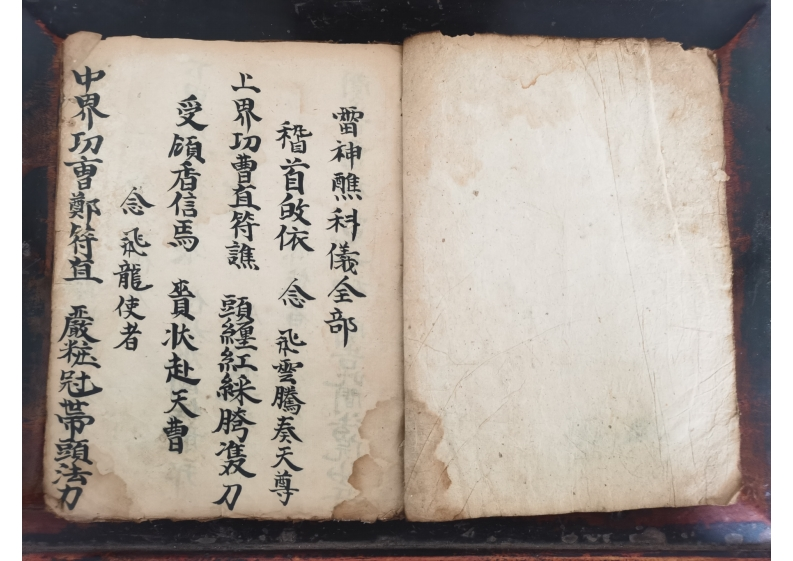 雷神醮科儀全部
稽首皈依　念　飛雲騰奏天尊
上界功曹直符譙　頭纏紅綵胯雙刀
受領香信焉　賫狀赴天曹
念　飛龍使者
中界功曹鄭符直　嚴粧冠帶頭法力